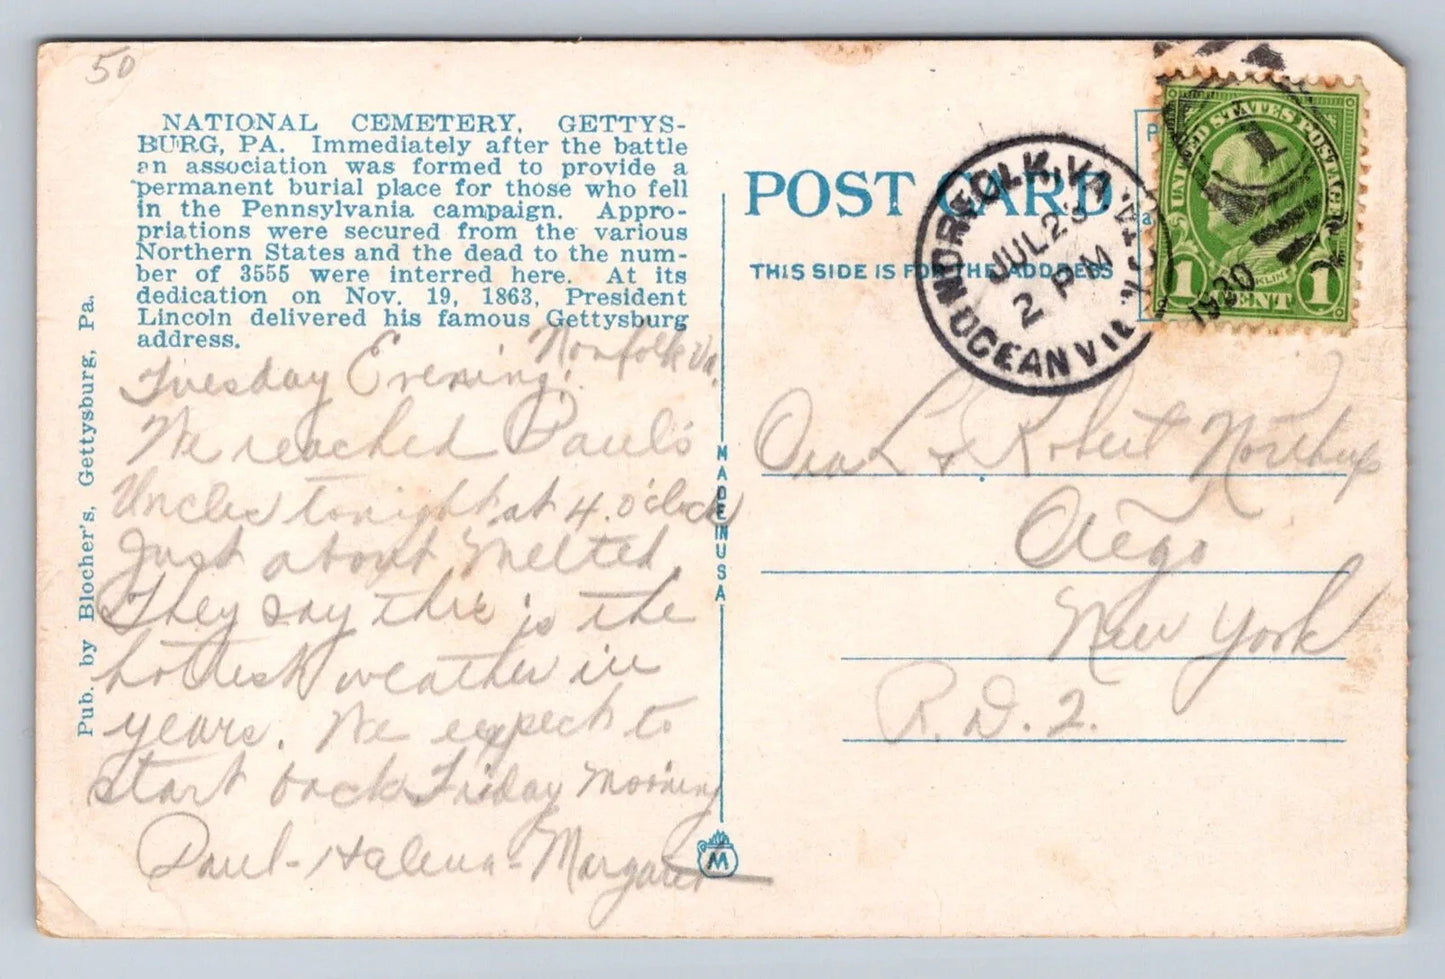 50
NATIONAL CEMETERY, GETTYS-
BURG, PA. Immediately after the battle
an association was formed to provide a
permanent burial place for those who fell
in the Pennsylvania campaign. Appro-
priations were secured from the various
Northern States and the dead to the num-
ber of 3555 were interred here. At its
dedication on Nov. 19, 1863, President
Lincoln delivered his famous Gettysburg
address.
Pub. by Blocher's, Gettysburg, Pa.
Norfolk Va.
Tuesday Evening.
We reached Paul's
Uncles tonight at 4. o'clock
Just about melted
They say this is the
hottest weather in
years. We expect to
start back Friday morning
Paul - Helena - Margaret
MADE IN USA
M
POST CARD
THIS SIDE IS FOR THE ADDRESS
NORFOLK, VA.
JUL 23
2 PM
1930
OCEAN VI
UNITED STATES POSTAGE
1 CENT 1
1
Ora L & Robert Northup
Otego
New York
R.D. 2.